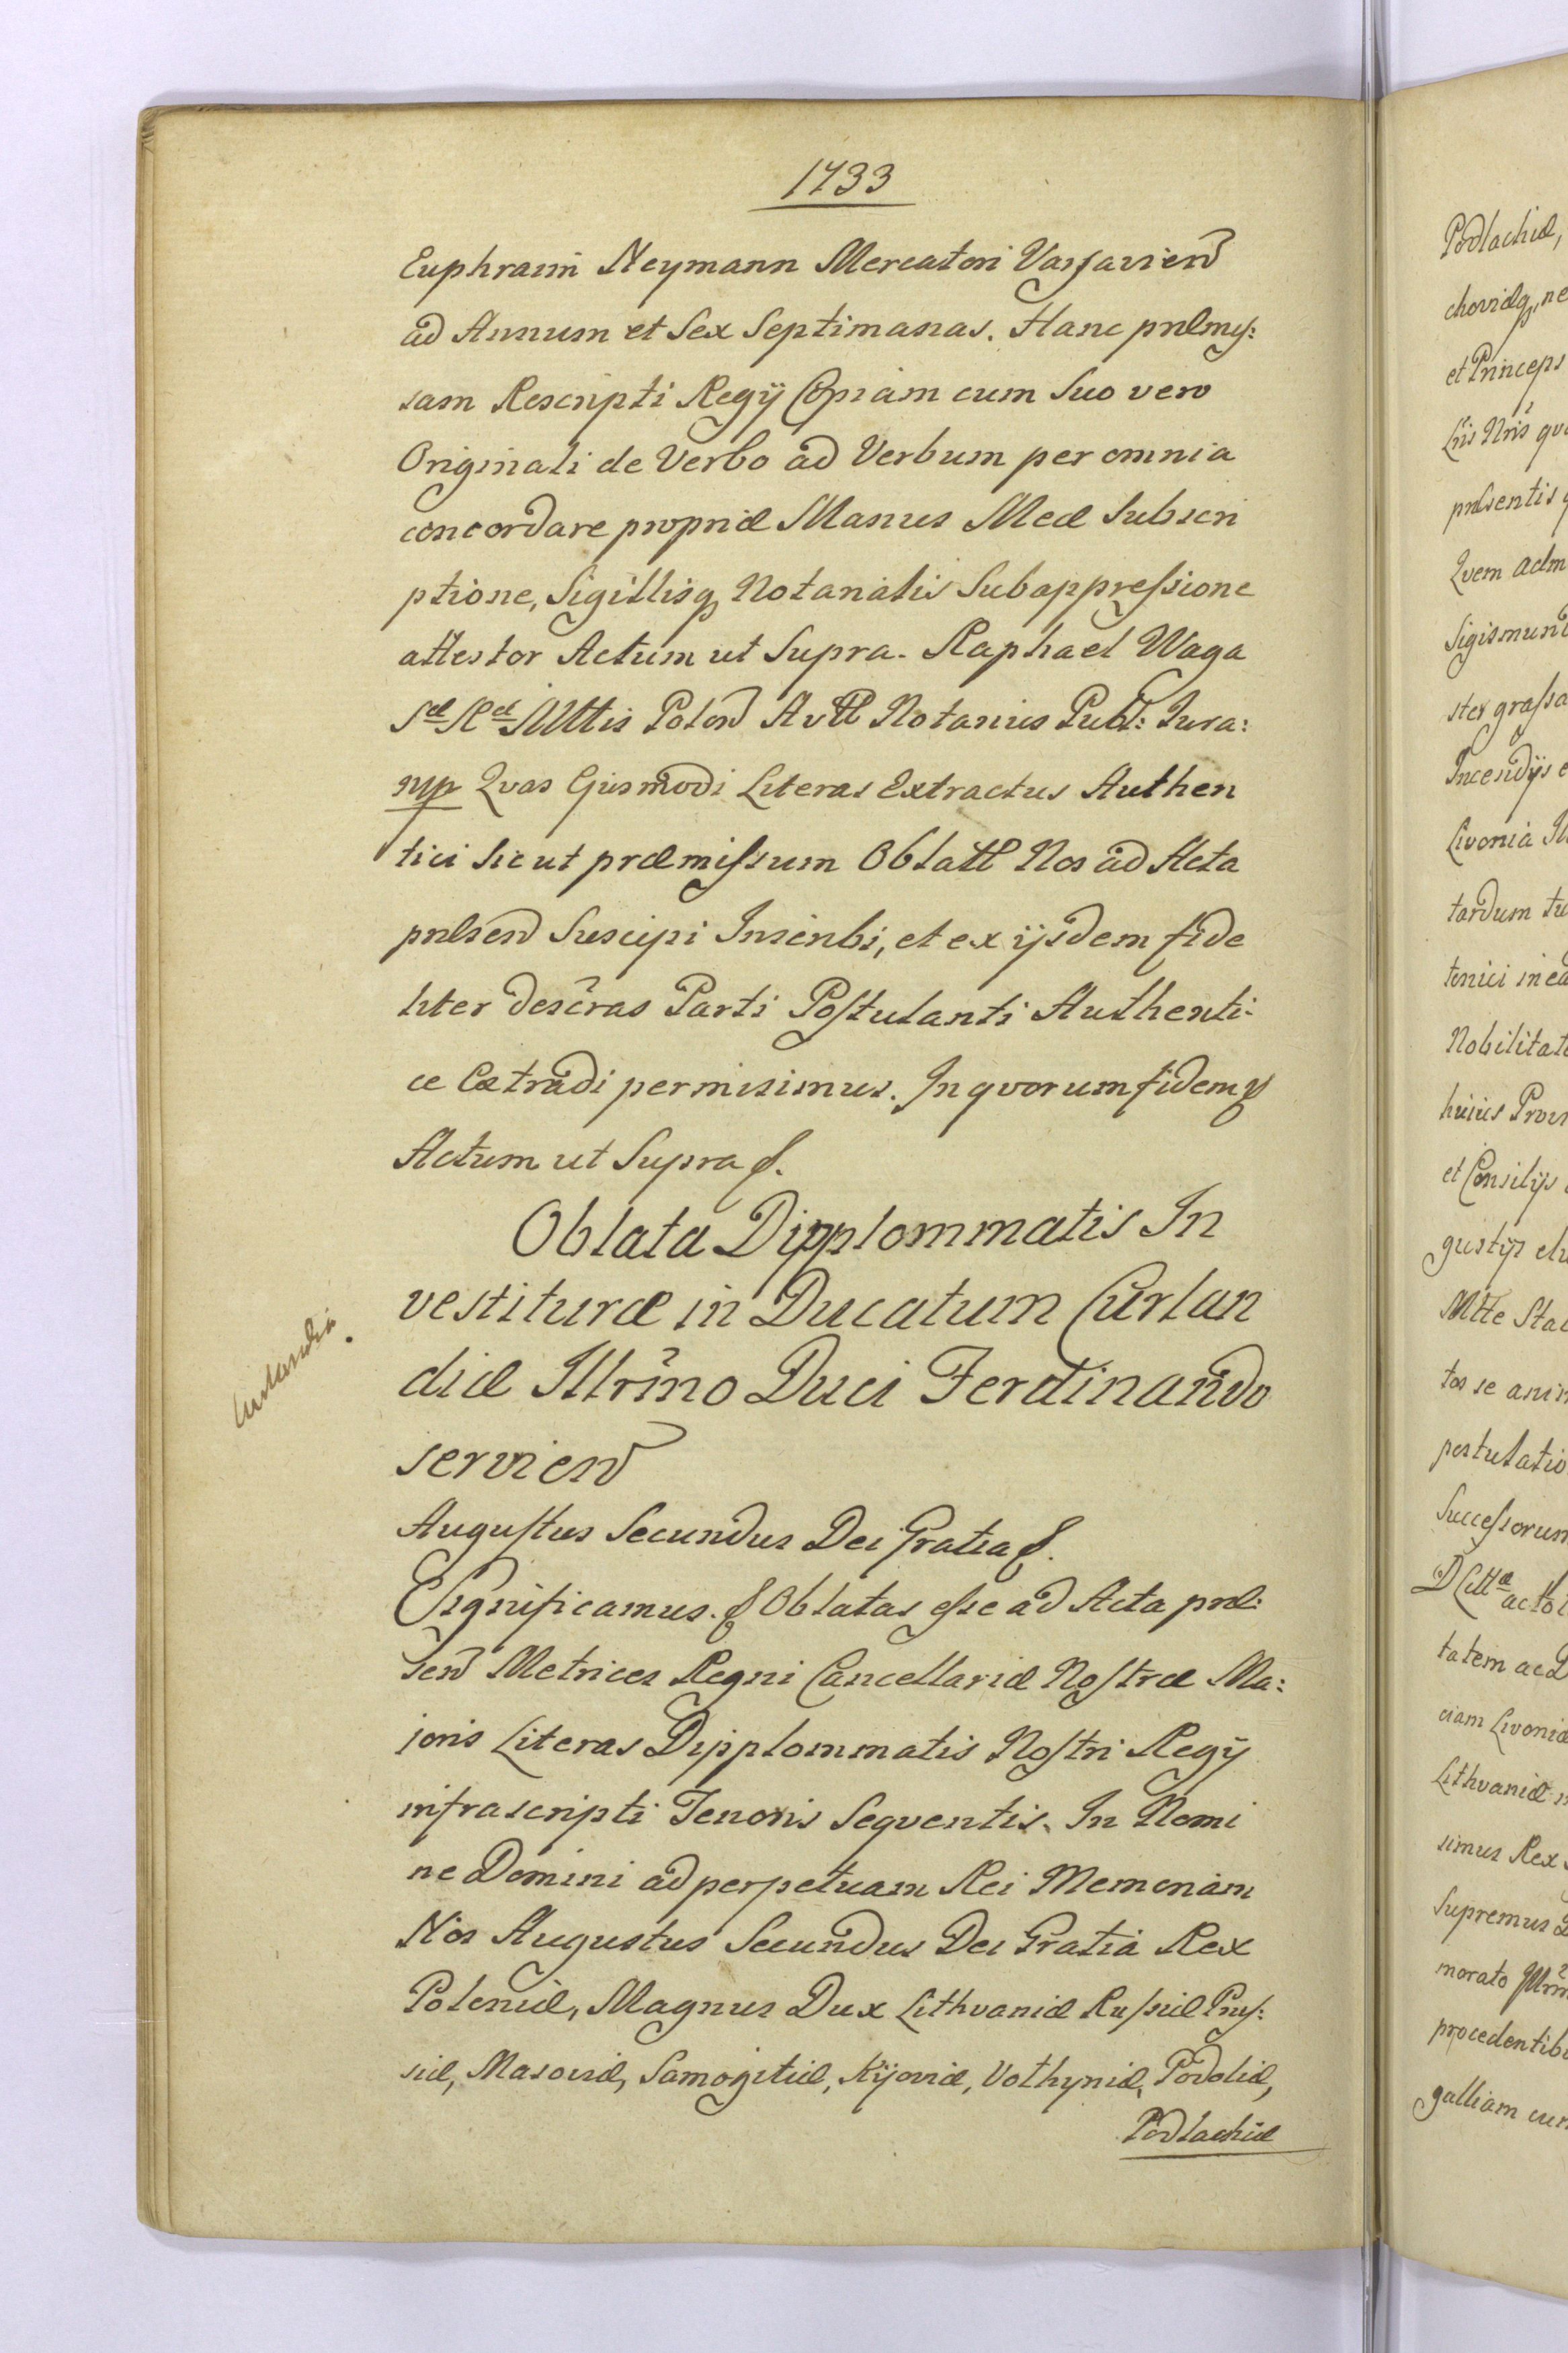 1733
Euphraim Neymann Mercatori Varsavien
ad Annum et Sex Septimanas. Hanc præmis:
sam Rescripti Regÿ Copiam cum Suo vero
Originali de Verbo ad Verbum per omnia
concordare propriæ Manus Meæ Subscri
ptione, Sigillisq Notarialis Subappressione
attestor Actum ut Supra. Raphael Waga
Sæ Ræ Mttis Polon Notarius Publ: Jura:
mp Qvas Ejusmodi Literas Extractus Authen
tici sicut præmissum Oblatt Nos ad Acta
præsen Suscipi Inscribi, et ex ijsdem fide
liter descras Parti Postulanti Authenti-
ce Extradi permisimus. In qvorum fidem
Actum ut Supra
Oblata Dipplommatis In
vestituræ in Ducatum Curlan
diæ Illrmo Duci Ferdinando
servien
Curlandia.
Augustus Secundus Dei Gratia
Significamus. Oblatas esse ad Acta præ:
sen Metrices Regni Cancellariæ Nostræ Ma:
joris Literas Dipplommatis Nostri Regÿ
infrascripti Tenoris Seqventis. In Nomi
ne Domini ad perpetuam Rei Memoriam
Nos Augustus Secundus Dei Gratia Rex
Poloniæ, Magnus Dux Lithvaniæ Russiæ Prus:
siæ, Masoviæ, Samogitiæ, Kijoviæ, Volhyniæ, Podoliæ,
Podlachiæ
Podlachiæ,
choviæq, ne
et Princeps
Lris Nris qu
præsentis
Qvem adm
Sigismund
ster grassa
Incendÿs e
Livonia
tardum tu
tonici in ea
Nobilitat
huius Prov
et Consilÿs
gustÿs
Mtte Sta
tos se ani
postulatio
Successorum
acto
tatem ac D
ciam Livoniæ
Lithvaniæ
simus Rex
Supremus
morato Illrm
procedentib
galliam cur